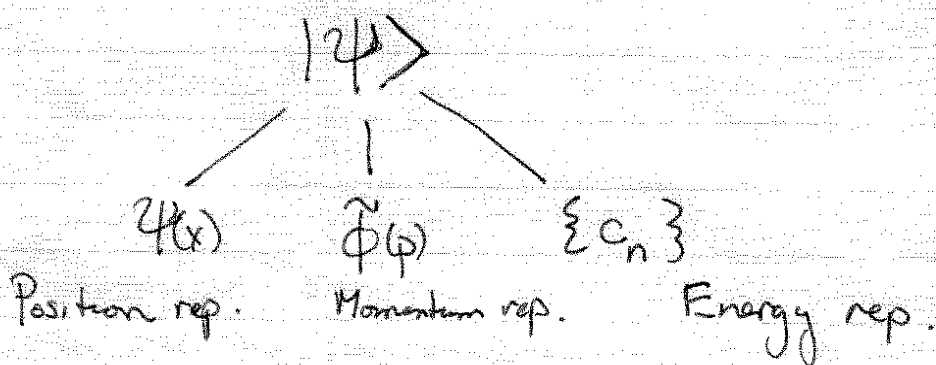 |ψ⟩
ψ(x) Φ̃(p) {c_n}
Position rep. Momentum rep. Energy rep.